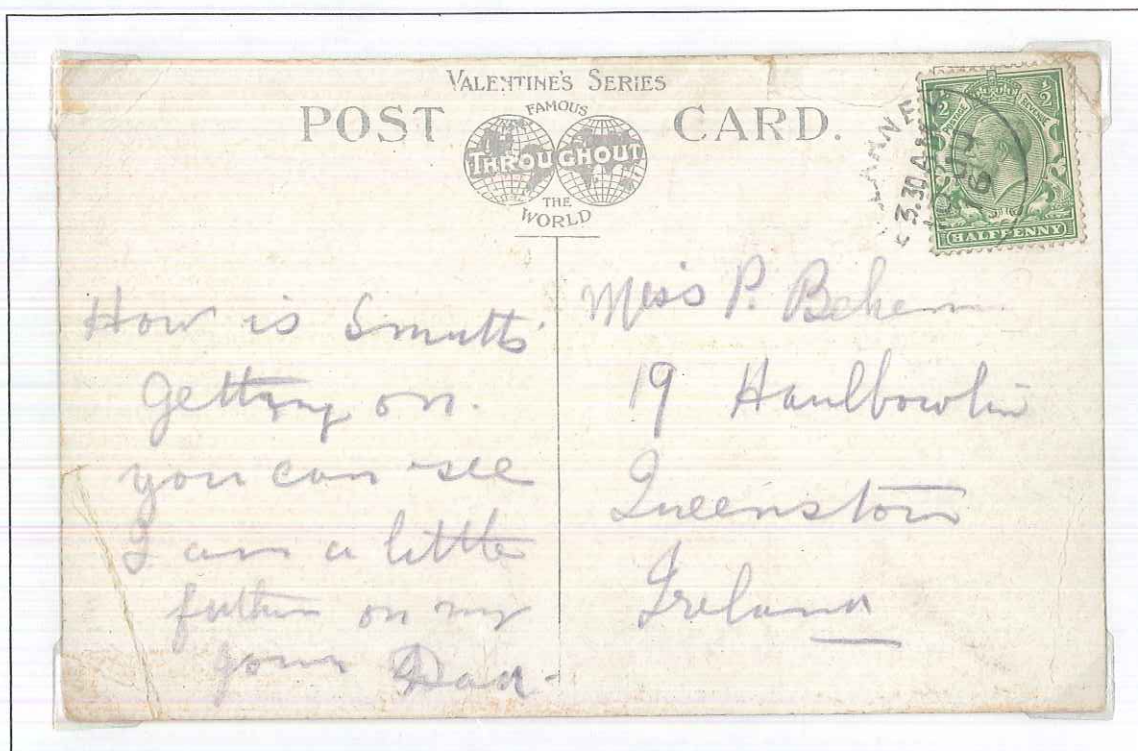 VALENTINE'S SERIES
POST CARD.
FAMOUS
THROUGHOUT
THE
WORLD
1/2 1/2
POSTAGE REVENUE
HALFPENNY
3.30 A
How is Smutts
getting on.
you can see
I am a little
futher on my
Dad-
Miss P.
19 Haulbowlin
Queenstown
Ireland